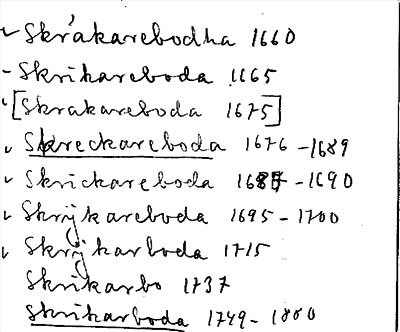 Skråkarebodha 1660
- Skrikareboda 1665
[Skrakareboda 1675]
Skreckareboda 1676 - 1689
Skrickareboda 1685 - 1690
Skrijkareboda 1695 - 1700
Skrijkarboda 1715
Skrikarbo 1737
Skrikarboda 1749 - 1880